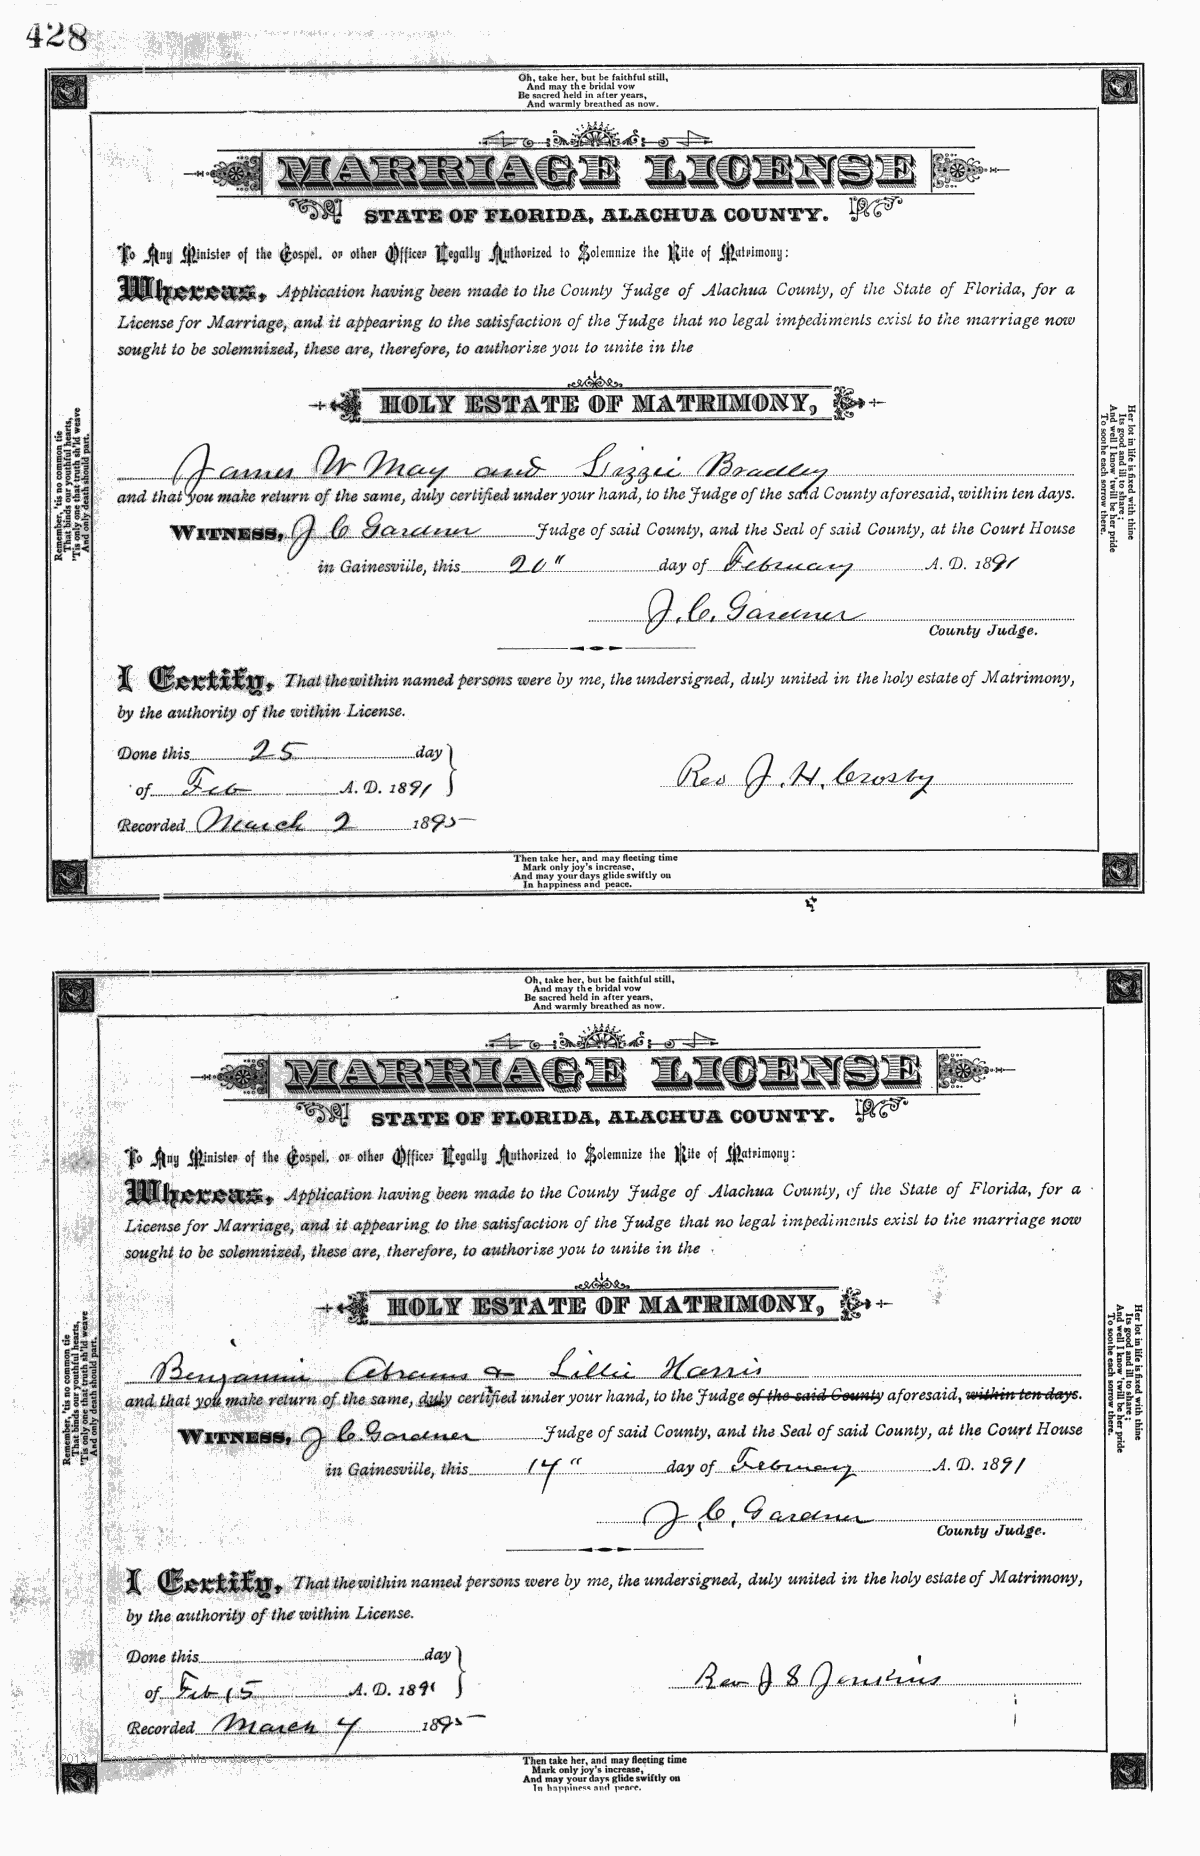 428
Oh, take her, but be faithful still,
And may the bridal vow
Be sacred held in after years,
And warmly breathed as now.
MARRIAGE LICENSE
STATE OF FLORIDA, ALACHUA COUNTY.
To Any Minister of the Gospel, or other Officer Legally Authorized to Solemnize the Rite of Matrimony:
Whereas, Application having been made to the County Judge of Alachua County, of the State of Florida, for a
License for Marriage, and it appearing to the satisfaction of the Judge that no legal impediments exist to the marriage now
sought to be solemnized, these are, therefore, to authorize you to unite in the
HOLY ESTATE OF MATRIMONY,
James W May and Lizzie Bradley
and that you make return of the same, duly certified under your hand, to the Judge of the said County aforesaid, within ten days.
WITNESS, J C Gardner Judge of said County, and the Seal of said County, at the Court House
in Gainesville, this 20" day of February A. D. 1891
J. C. Gardner
County Judge.
I Certify, That the within named persons were by me, the undersigned, duly united in the holy estate of Matrimony,
by the authority of the within License.
Done this 25 day
of Feb A. D. 1891
Rev J. H. Crosby
Recorded March 2 1895
Remember, 'tis no common tie
That binds our youthful hearts,
'Tis only one that truth sh'ld weave
And only death should part.
Her lot in life is fixed with thine
Its good and ill to share;
And well I know 'twill be her pride
To soothe each sorrow there.
Then take her, and may fleeting time
Mark only joy's increase,
And may your days glide swiftly on
In happiness and peace.
Oh, take her, but be faithful still,
And may the bridal vow
Be sacred held in after years,
And warmly breathed as now.
MARRIAGE LICENSE
STATE OF FLORIDA, ALACHUA COUNTY.
To Any Minister of the Gospel, or other Officer Legally Authorized to Solemnize the Rite of Matrimony:
Whereas, Application having been made to the County Judge of Alachua County, of the State of Florida, for a
License for Marriage, and it appearing to the satisfaction of the Judge that no legal impediments exist to the marriage now
sought to be solemnized, these are, therefore, to authorize you to unite in the
HOLY ESTATE OF MATRIMONY,
Benjamin Abrams & Lillie Harris
and that you make return of the same, duly certified under your hand, to the Judge of the said County aforesaid, within ten days.
WITNESS, J C. Gardner Judge of said County, and the Seal of said County, at the Court House
in Gainesville, this 14" day of February A. D. 1891
J. C. Gardner
County Judge.
I Certify, That the within named persons were by me, the undersigned, duly united in the holy estate of Matrimony,
by the authority of the within License.
Done this day
of Feb 15 A. D. 1891
Rev J S Jenkins
Recorded March 4 1895
Remember, 'tis no common tie
That binds our youthful hearts,
'Tis only one that truth sh'ld weave
And only death should part.
Her lot in life is fixed with thine
Its good and ill to share;
And well I know 'twill be her pride
To soothe each sorrow there.
Then take her, and may fleeting time
Mark only joy's increase,
And may your days glide swiftly on
In happiness and peace.